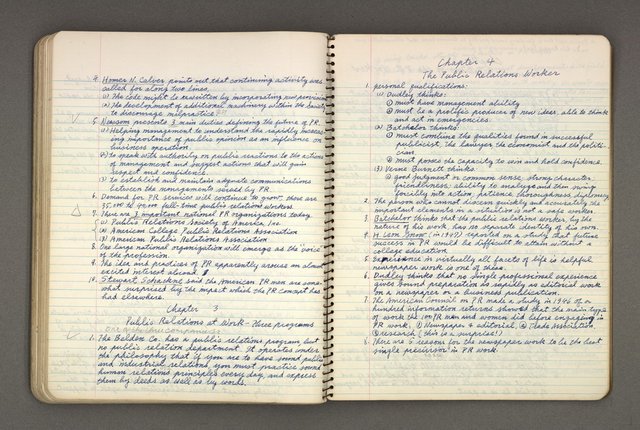 4. Homer N. Calver points out that continuing activity was
called for along two lines.
(1) The code might be rewritten by incorporating new provisions
(2) The development of additional machinery within the Society
to discourage malpractice.
5. Newsom presents 3 main duties defining the future of PR.
(1) Helping management to understand the rapidly increas-
ing importance of public opinion as an influence on
business operation.
(2) to speak with authority on public reactions to the actions
of management and suggest actions that will gain
respect and confidence.
(3) to establish and maintain adequate communications
between the managements served by PR.
6. Demand for PR services will continue to grow. there are
full-time public relations workers.
7. There are 3 important national PR organizations today.
(1) Public Relations Society of America, Inc.
(2) American College Public Relations Association
(3) American Public Relations Association
8. One large national organization will emerge as the "voice"
of the profession.
9. The idea and practices of PR apparently arouse an almost
excited interest abroad.
10. Stewart Schackne said the American PR men are some-
what surprised by the impact which the PR concept has
had elsewhere.
Chapter 3
Public Relations at Work - three programs
1. The Belden Co. has a public relations program but
no public relation department. It operates under
the philosophy that if you are to have sound public
and industrial relations, you must practice sound
human relations principles every day, and express
them by deeds as well as by words.
Chapter 4
The Public Relations Worker
1. personal qualifications:
(1) Dudley thinks:
① must have management ability
② must be a prolific producer of new ideas, able to think
and act on emergencies.
(2) Batchelor thinks:
① must combine the qualities found in successful
publicist, the lawyer, the economist and the politi-
cian
② must posses the capacity to win and hold confidence.
(3) Verne Burnett thinks:
① good judgment or common sense, strong character,
friendliness, ability to analyze and then swing
forcibly into action, patience, thoroughness, diplomacy
2. The person who cannot discern quickly and accurately the
important elements in a situation is not a safe worker.
3. Batchelor thinks that the public relations worker, by the
nature of his work, has no separate identity of his own.
4. (in 1947) reported on a study that future
success in PR would be difficult to attain without a
college education.
5. Experience in virtually all facets of life is helpful
newspaper work is one of these.
6. Dudley thinks that no single professional experience
gives sound preparation so rapidly as editorial work
on a newspaper or a business publication.
7. The American Council on PR made a study in 1946 of a
hundred information returns showed that the main types
of work the 100 PR men and women did before engaging in
PR work. ① Newspaper & editorial, ② trade association,
③ research (this is a surprise!)
8. There are 5 reasons for the newspaper work to be the best
single precursor in PR work.